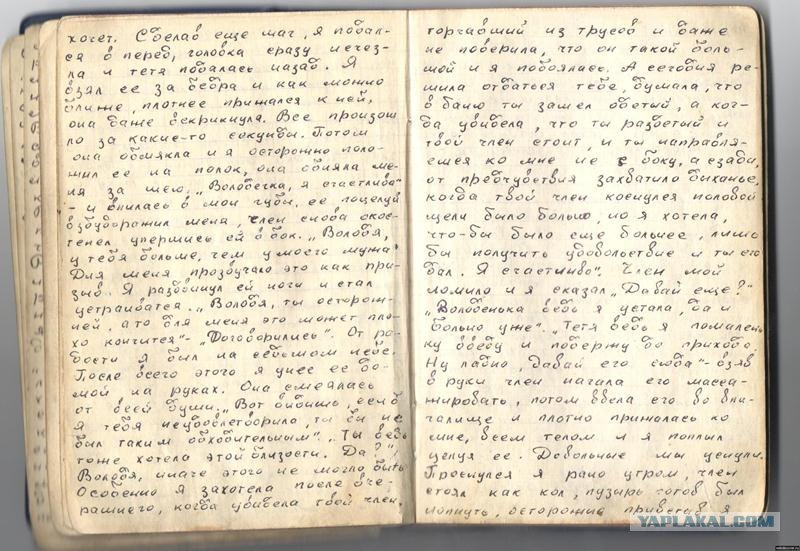 хочет. Сделав еще шаг, я подал-
ся вперед, головка сразу исчез-
ла и тетя подалась назад. Я
взял ее за бедра и как можно
ближе, плотнее прижался к ней,
она даже вскрикнула. Все произош
ло за какие-то секунды. Потом
она обмякла и я осторожно поло-
жил ее на полок, она обняла ме-
ня за шею, „Володечка, я счастлива"
- и впилась в мои губы, ее поцелуй
взбудоражил меня, член снова окос-
тенел упершись ей в бок. „Володя,
у тебя больше, чем у моего мужа"
Для меня прозвучало это как при-
зыв. Я раздвинул ей ноги и стал
устраиватся. „Володя, ты осторож-
ней, а то для меня это может пло-
хо кончится" - „Договорились". От ра-
дости я был на седьмом небе.
После всего этого я унес ее до-
мой на руках. Она смеялась
от всей души: „Вот видишь, если б
я тебя неудовлетворила, ты бы не
был таким обходительным". „Ты ведь
тоже хотела этой близости. Да?"
Володя, иначе этого не могло быть
Особенно я захотела после вче-
рашнего, когда увидела твой член,
торчавший из трусов и даже
не поверила, что он такой боль-
шой и я побоялась. А сегодня ре-
шила отдаться тебе, думала, что
в баню ты зашел одетый, а ког-
да увидела, что ты раздетый и
твой член стоит, и ты направля-
ешся ко мне не с боку, а сзади,
от предчувствия захватило дыханье,
когда твой член коснулся половой
щели было больно, но я хотела,
что-бы было еще больнее, лишь
бы получить удовольствие и ты его
дал. Я счастлива". Член мой
ломило и я сказал „Давай еще?"
„Володенька ведь я устала, да и
больно уже". „Тетя ведь я помалень
ку введу и подержу до прихода.
Ну ладно, давай его сюда" - взяв
в руки член начала его масса-
жировать, потом ввела его во вла-
галище и плотно прижалась ко
мне, всем телом и я поплыл
целуя ее. Довольные мы уснули.
Проснулся я рано утром, член
стоял как кол, пузырь готов был
лопнуть, осторожно я
YAPLAKAL.COM